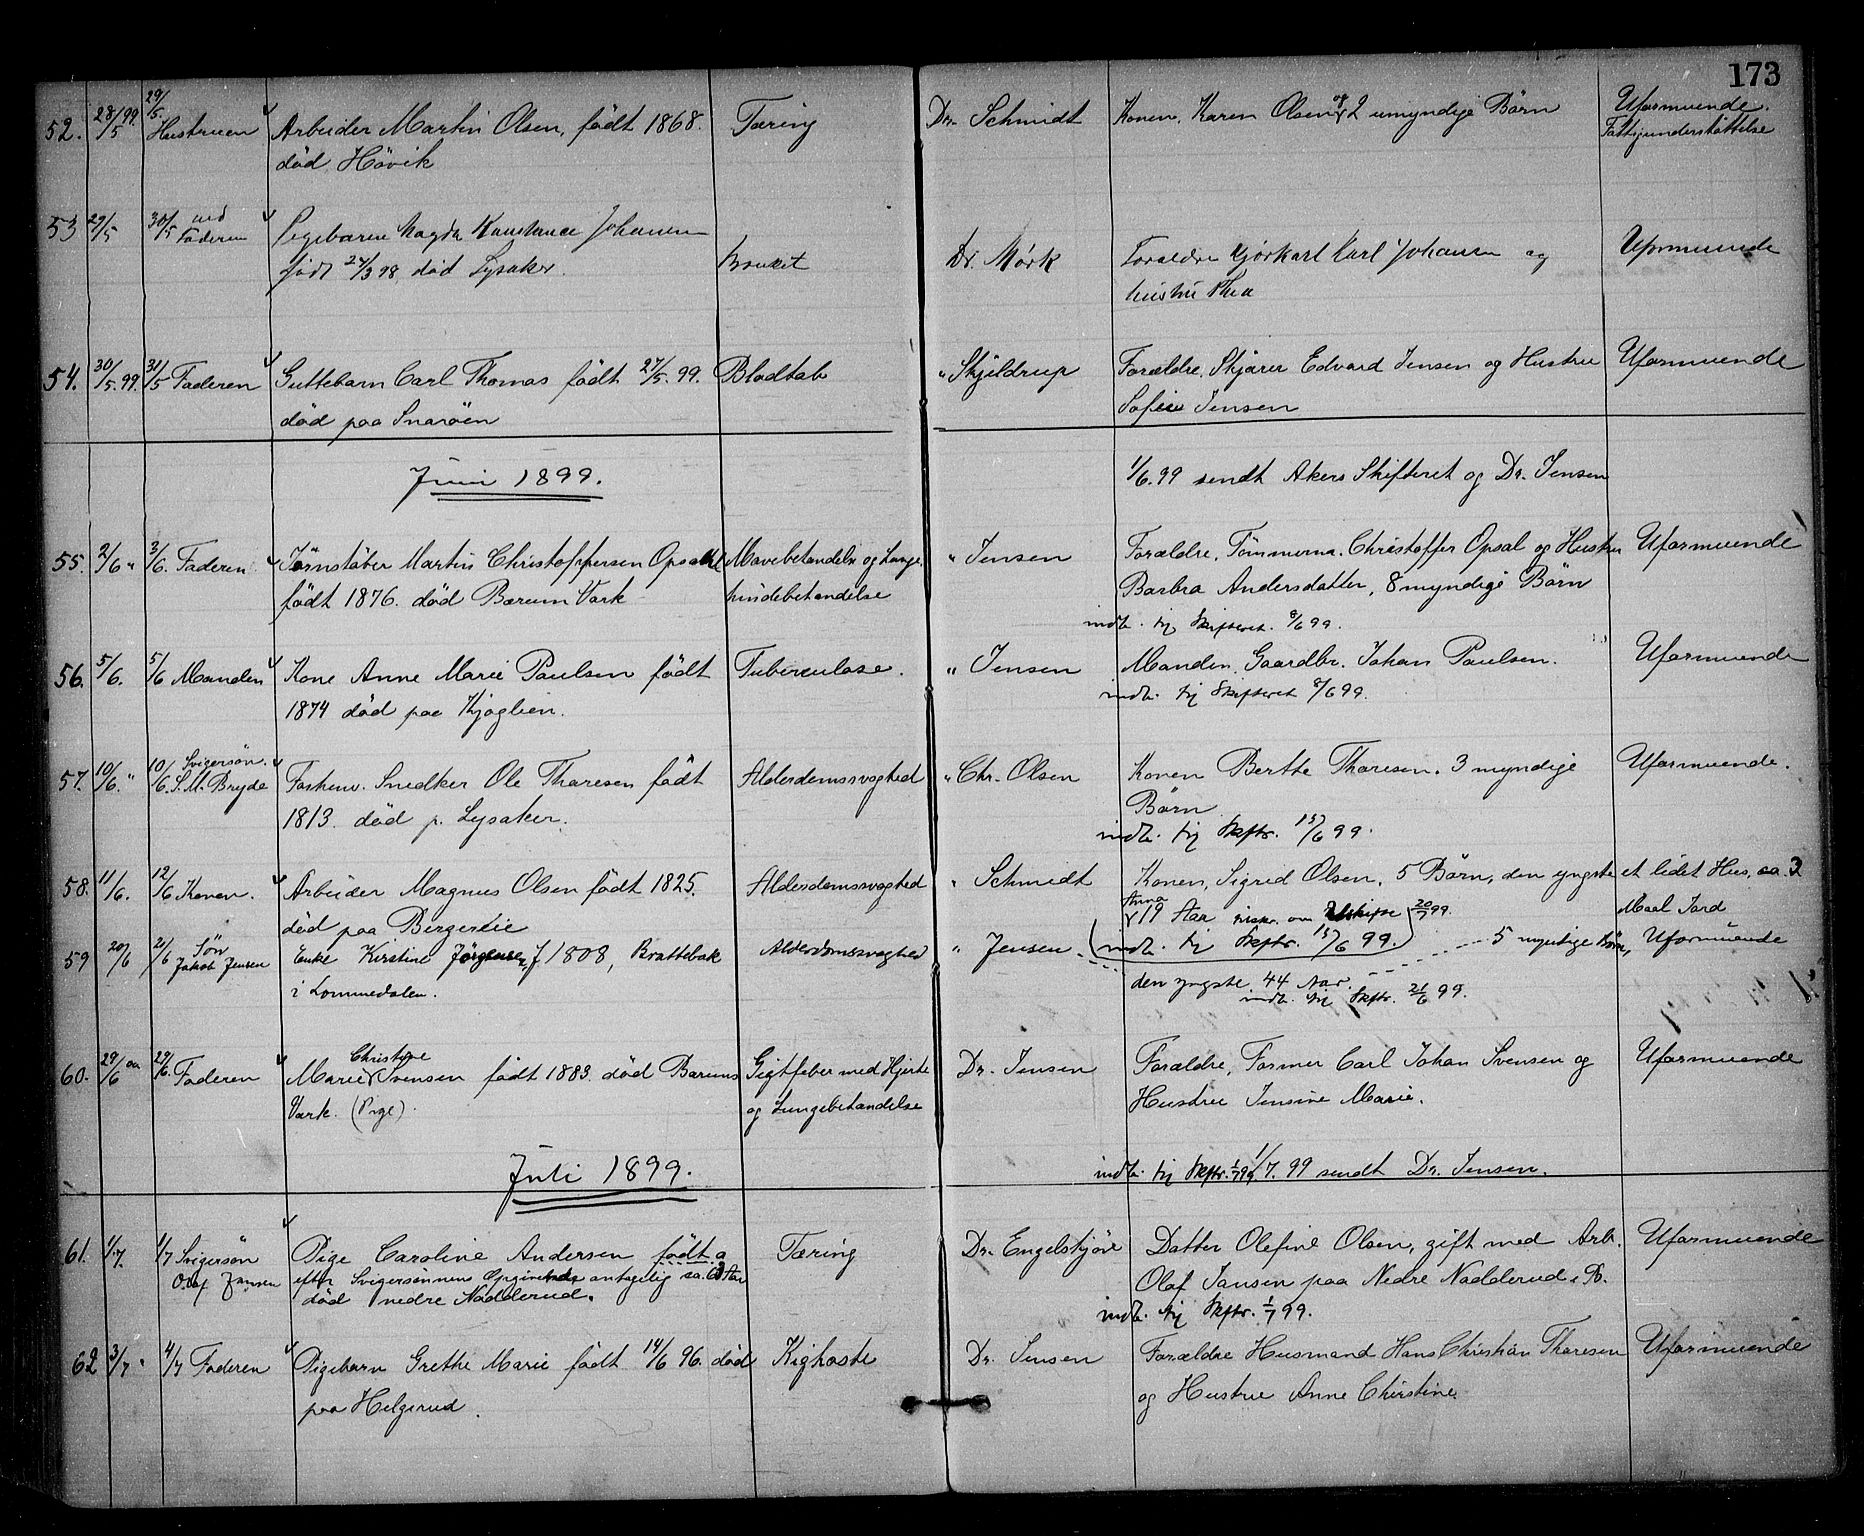 173
52. 28/5 99. 29/5. Hustruen Arbeider Martin Olsen, født 1868. Tæring Dr. Schmidt Konen, Karen Olsen og 2 umyndige Børn Uformuende.
død Høvik Fattigunderstøttelse
53 29/5 30/5 ved Faderen Pigebarn Magda Konstance Johansen
født 27/3 98, død Lysaker. Dr. Mørk Forældre Kjørkarl Karl Johansen og Uformuende
hustru Thea
54. 30/5. 99. 31/5 Faderen Guttebarn Carl Thomas født 27/5. 99. Blodtab " Skjeldrup Forældre, Skjærer Edvard Jensen og Hustru Uformuende
død paa Snarøen Sofie Jensen
Juni 1899. 1/6. 99 sendt Akers Skifteret og Dr. Jensen
55. 2/6 " 3/6. Faderen Jernstøber Martin Christoffersen Opsahl Mavebetændelse og Lunge " Jensen Forældre, Tømmerm. Christoffer Opsal og Hustru Uformuende
født 1876. død Bærum Værk hindebetændelse Barbra Andersdatter, 8 myndige Børn
indb. til Skifteret. 8/6 99.
56. 5/6. 5/6 Manden Kone Anne Marie Paulsen født Tuberculose. " Jensen Manden, Gaardbr. Johan Paulsen. Uformuende
1874 død paa Kjaglien. indb. til Skifteret 8/6 99.
57. 10/6. " 10/6. Svigersøn. S. M. Bryde Forhenv. Snedker Ole Thoresen født Alderdomssvaghed " Chr. Olsen Konen Berthe Thoresen. 3 myndige Uformuende.
1813. død p. Lysaker. Børn
indb. til Skftr. 15/6 99.
58. 11/6. 12/6 Konen. Arbeider Magnus Olsen født 1825. Alderdomssvaghed " Schmidt Konen, Sigrid Olsen. 5 Børn, den yngste et lidet Hus, ca. 2
død paa Bergerlie Anna 19 Aar 20/7 99. Maal Jord
(indb. til Skftr. 15/6 99.)
59 20/6 21/6 Søn Jakob Jensen Enke Kirstine Jørgensen, f. 1808, Brattebak Alderdomssvaghed " Jensen 5 myndige Børn, Uformuende
i Lommedalen. den yngste 44 Aar.
indb. til Skftr. 21/6 99.
60. 29/6 29/6. Faderen Marie Christine Svensen født 1883. død Bærums Gigtfeber med Hjerte Dr. Jensen Forældre, Former Carl Johan Svensen og Uformuende
Værk. (Pige). og Lungebetændelse Hustru Jensine Marie.
Juli 1899. indb. til Skftr. 1/7 99 1/7. 99 sendt Dr. Jensen.
61. 1/7. 1/7 Svigersøn Olaf Jansen Pige Caroline Andersen født Tæring Dr. Engelskjøn Datter Olefine Olsen, gift med Arb. Uformuende
efter Svigersønnens Opgivende antagelig ca. 63 Aar Olaf Jansen paa Nedre Nadderud i B.
død nedre Nadderud. indb. til Skftr. 1/7 99.
62 3/7 " 4/7 Faderen Pigebarn Grethe Marie født 14/6 96. død Kighoste Dr. Jensen Forældre Husmand Hans Christian Thoresen Uformuende
paa Helgerud. og Hustru Anne Christine.